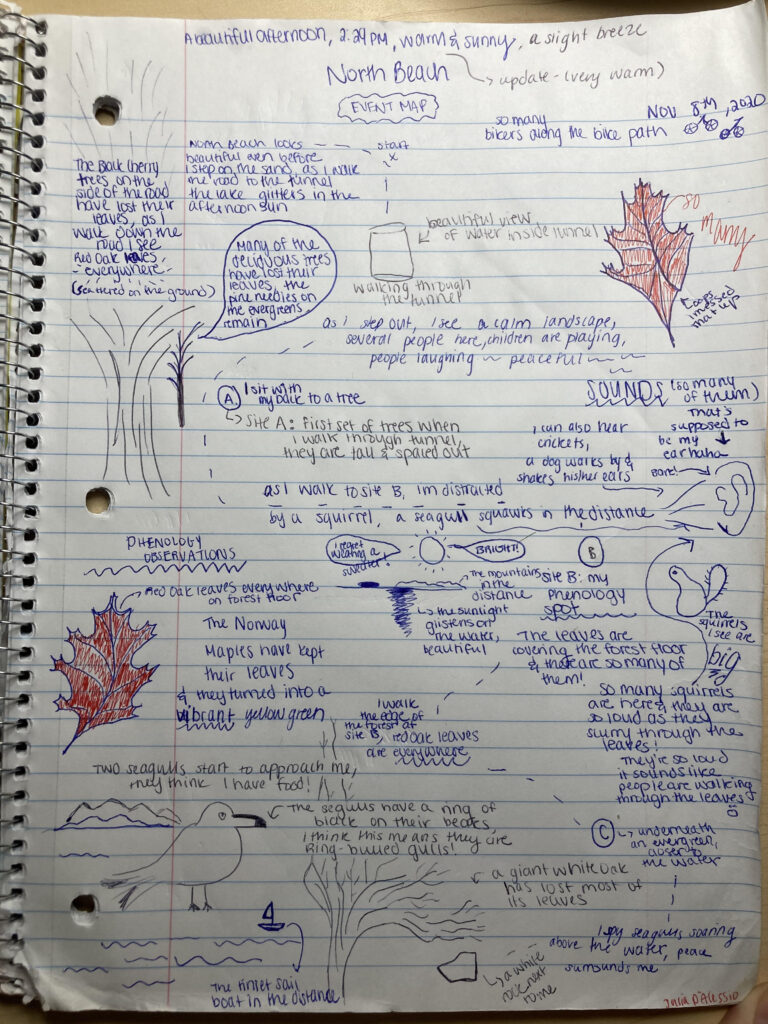 A beautiful afternoon, 2:29 PM, warm & sunny, a slight breeze
North Beach
update - (very warm)
EVENT MAP
Nov 8TH, 2020
so many
bikers along the bike path
North Beach looks
beautiful even before
I step on the sand, as I walk
the road to the tunnel
the lake glitters in the
afternoon sun
start
x
The Black Cherry
trees on the
side of the road
have lost their
leaves, as I
walk down the
road I see
Red Oak leaves
everywhere
(scattered on the ground)
Many of the
deciduous trees
have lost their
leaves, the
pine needles on
the evergreens
remain
beautiful view
of water inside tunnel
walking through
the tunnel
so
many
Loops
I messed
that up
as i step out, I see a calm landscape,
several people here, children are playing,
people laughing ~ peaceful
A
I sit with
my back to a tree
Site A: First set of trees when
I walk through tunnel,
they are tall & spaced out
SOUNDS (so many
of them)
I can also hear
crickets,
a dog walks by &
shakes his/her ears
That's
supposed to
be my
ear haha
Bark!
as I walk to site B, im distracted
by a squirrel, a seagull squawks in the distance
PHENOLOGY
OBSERVATIONS
Red Oak leaves everywhere
on forest floor
The Norway
Maples have kept
their leaves
& they turned into a
vibrant yellow green
I regret
wearing a
sweater!
BRIGHT!
The mountains
in the
distance
the sunlight
glistens on
the water,
beautiful
B
site B: my
phenology
spot
The leaves are
covering the forest floor
& there are so many of
them!
The
squirrels
I see are
big
So many squirrels
are here & they are
so loud as they
slurry through the
leaves!
They're so loud
it sounds like
people are walking
through the leaves
I walk
the edge of
the forest at
site B, red oak leaves
are everywhere
Two seagulls start to approach me,
they think I have food!
The segulls have a ring of
black on their beaks,
I think this means they are
Ring-billed gulls!
C
underneath
an evergreen,
closer to
the water
a giant white oak
has lost most of
its leaves
I spy seagulls soaring
above the water, peace
surrounds me
a white
rock next
to me
The tiniest sail
boat in the distance
Julia D'Alessio